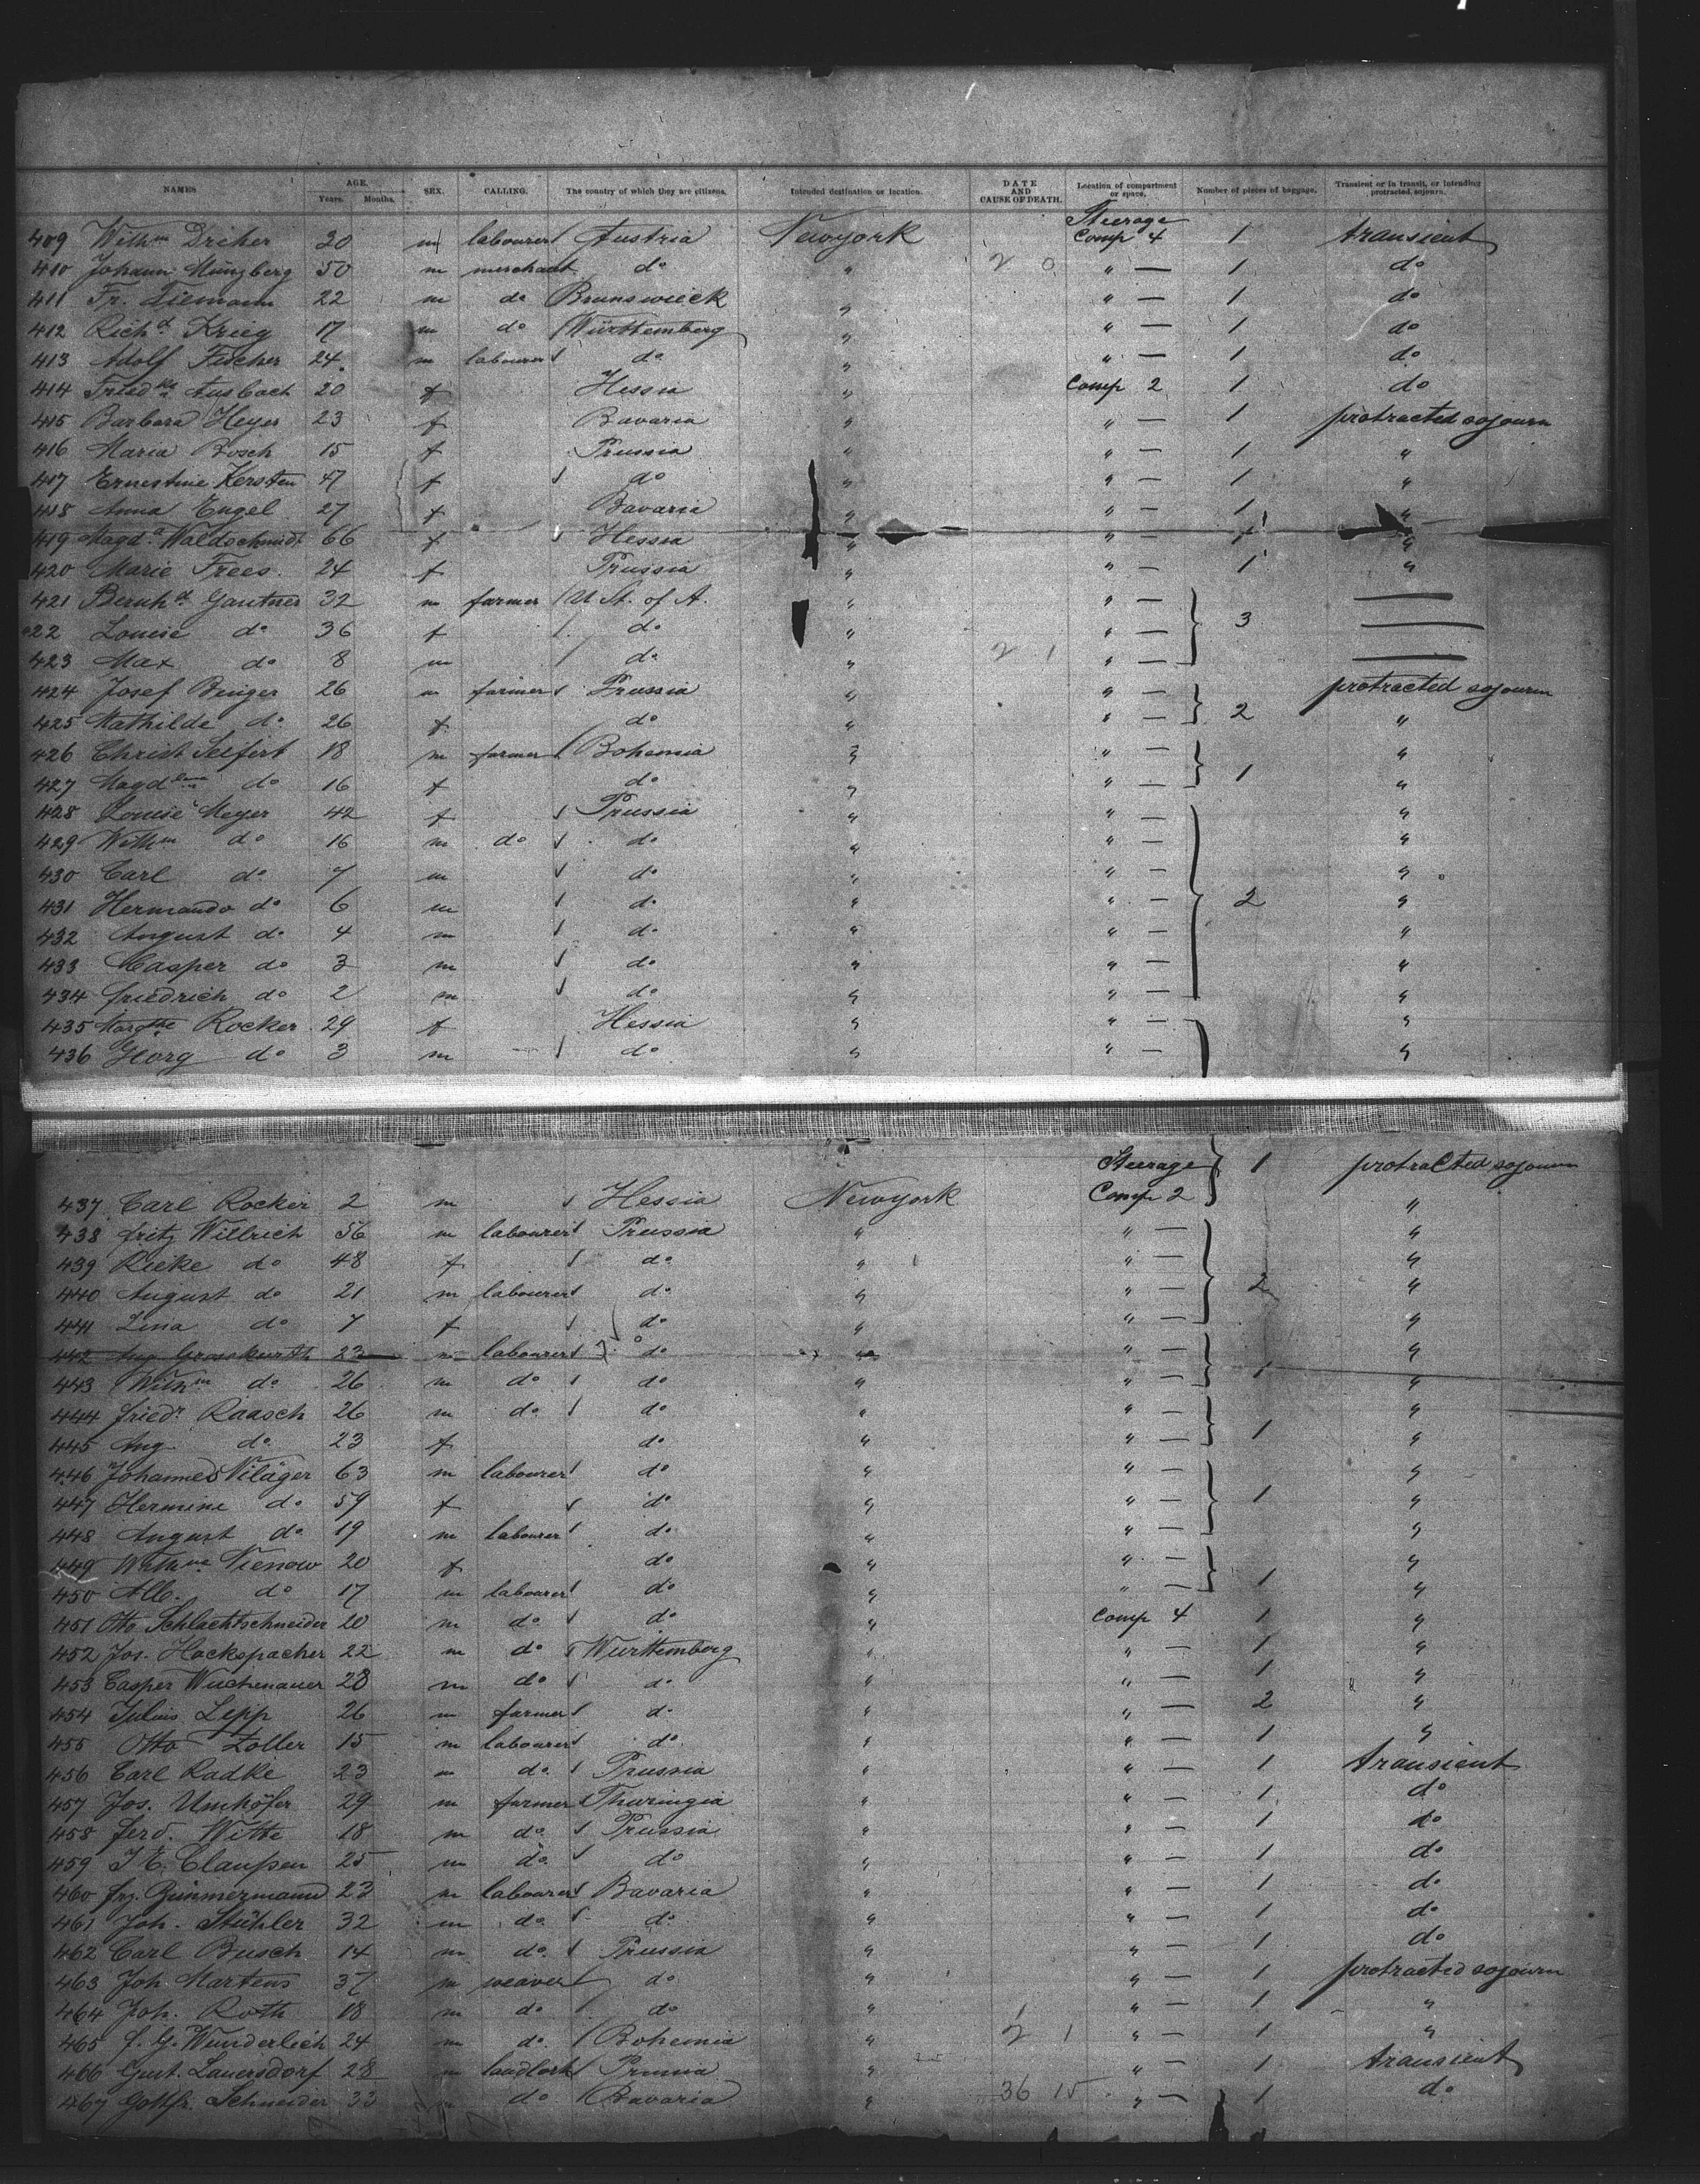 NAMES AGE. Years. Months. SEX. CALLING. The country of which they are citizens. Intended destination or location. DATE AND CAUSE OF DEATH. Location of compartment or space. Number of pieces of baggage. Transient or in transit, or intending protracted sojourn.
Steerage
409 Wilhm Driher 20 m labourer Austria Newyork Comp 4 1 transient
410 Johann Münzberg 50 m merchant do " 2 0 " — 1 do
411 Fr. Tiemann 22 m do Brunswieck " " — 1 do
412 Richd Krieg 17 m do Württemberg " " — 1 do
413 Adolf Fischer 24 m labourer do " " — 1 do
414 Friedke Ausbach 20 f Hessia " Comp 2 1 do
415 Barbara Heyer 23 f Bavaria " " — 1 protracted sojourn
416 Maria Bosch 15 f Prussia " " — 1 "
417 Ernestine Kersten 47 f do " " — 1 "
418 Anna Engel 27 f Bavaria " " — 1 "
419 Magda Waldschmidt 66 f Hessia " " — 1 "
420 Marie Frees 24 f Prussia " " — 1 "
421 Bernhd Gantner 32 m farmer U St. of A. " " — —
422 Louise do 36 f do " " — 3 —
423 Max do 8 m do " 2 1 " — —
424 Josef Binger 26 m farmer Prussia " " — protracted sojourn
425 Mathilde do 26 f do " " — 2 "
426 Christ Seifert 18 m farmer Bohemia " " — "
427 Magdlena do 16 f do " " — 1 "
428 Louise Meyer 42 f Prussia " " — "
429 Wilhm do 16 m do do " " — "
430 Carl do 7 m do " " — "
431 Hermando do 6 m do " " — 2 "
432 August do 4 m do " " — "
433 Casper do 3 m do " " — "
434 Friedrich do 2 m do " " — "
435 Margthe Rocker 29 f Hessia " " — "
436 Georg do 3 m do " " — "
Steerage 1 protracted sojourn
437 Carl Rocker 2 m Hessia Newyork Comp 2 "
438 Fritz Willrich 56 m labourer Prussia " " — "
439 Rieke do 48 f do " " — "
440 August do 21 m labourer do " " — 2 "
441 Lina do 7 f do " " — "
442 Aug Grosskurth 23 m labourer do " " — "
443 Wilhm do 26 m do do " " — 1 "
444 Friedr Raasch 26 m do do " " — "
445 Aug do 23 f do " " — 1 "
446 Johannes Viläger 63 m labourer do " " — "
447 Hermine do 59 f do " " — 1 "
448 August do 19 m labourer do " " — "
449 Wilhme Vienow 20 f do " " — "
450 Alb. do 17 m labourer do " " — 1 "
451 Otto Schlachtschneider 20 m do do " Comp 4 1 "
452 Jos. Hackspacher 22 m do Wurttemberg " " — 1 "
453 Casper Wuchenauer 28 m do do " " — 1 "
454 Julius Lepp 26 m farmer do " " — 2 "
455 Otto Zoller 15 m labourer do " " — 1 "
456 Carl Radke 23 m do Prussia " " — 1 transient
457 Jos. Umhöfer 29 m farmer Thuringia " " — 1 do
458 Ferd. Witte 18 m do Prussia " " — 1 do
459 J E. Claussen 25 m do do " " — 1 do
460 Frz. Gimmermann 23 m labourer Bavaria " " — 1 do
461 Joh. Stühler 32 m do do " " — 1 do
462 Carl Busch 14 m do Prussia " " — 1 do
463 Joh. Martens 37 m weaver do " " — 1 protracted sojourn
464 Joh. Roth 18 m do do " " — 1 "
465 F. G. Wunderlich 24 m do Bohemia " 2 1 " — 1 "
466 Gust. Lauersdorf 28 m Prussia " " — 1 transient
467 Gottfr. Schneider 33 do Bavaria " 36 15 " — 1 do